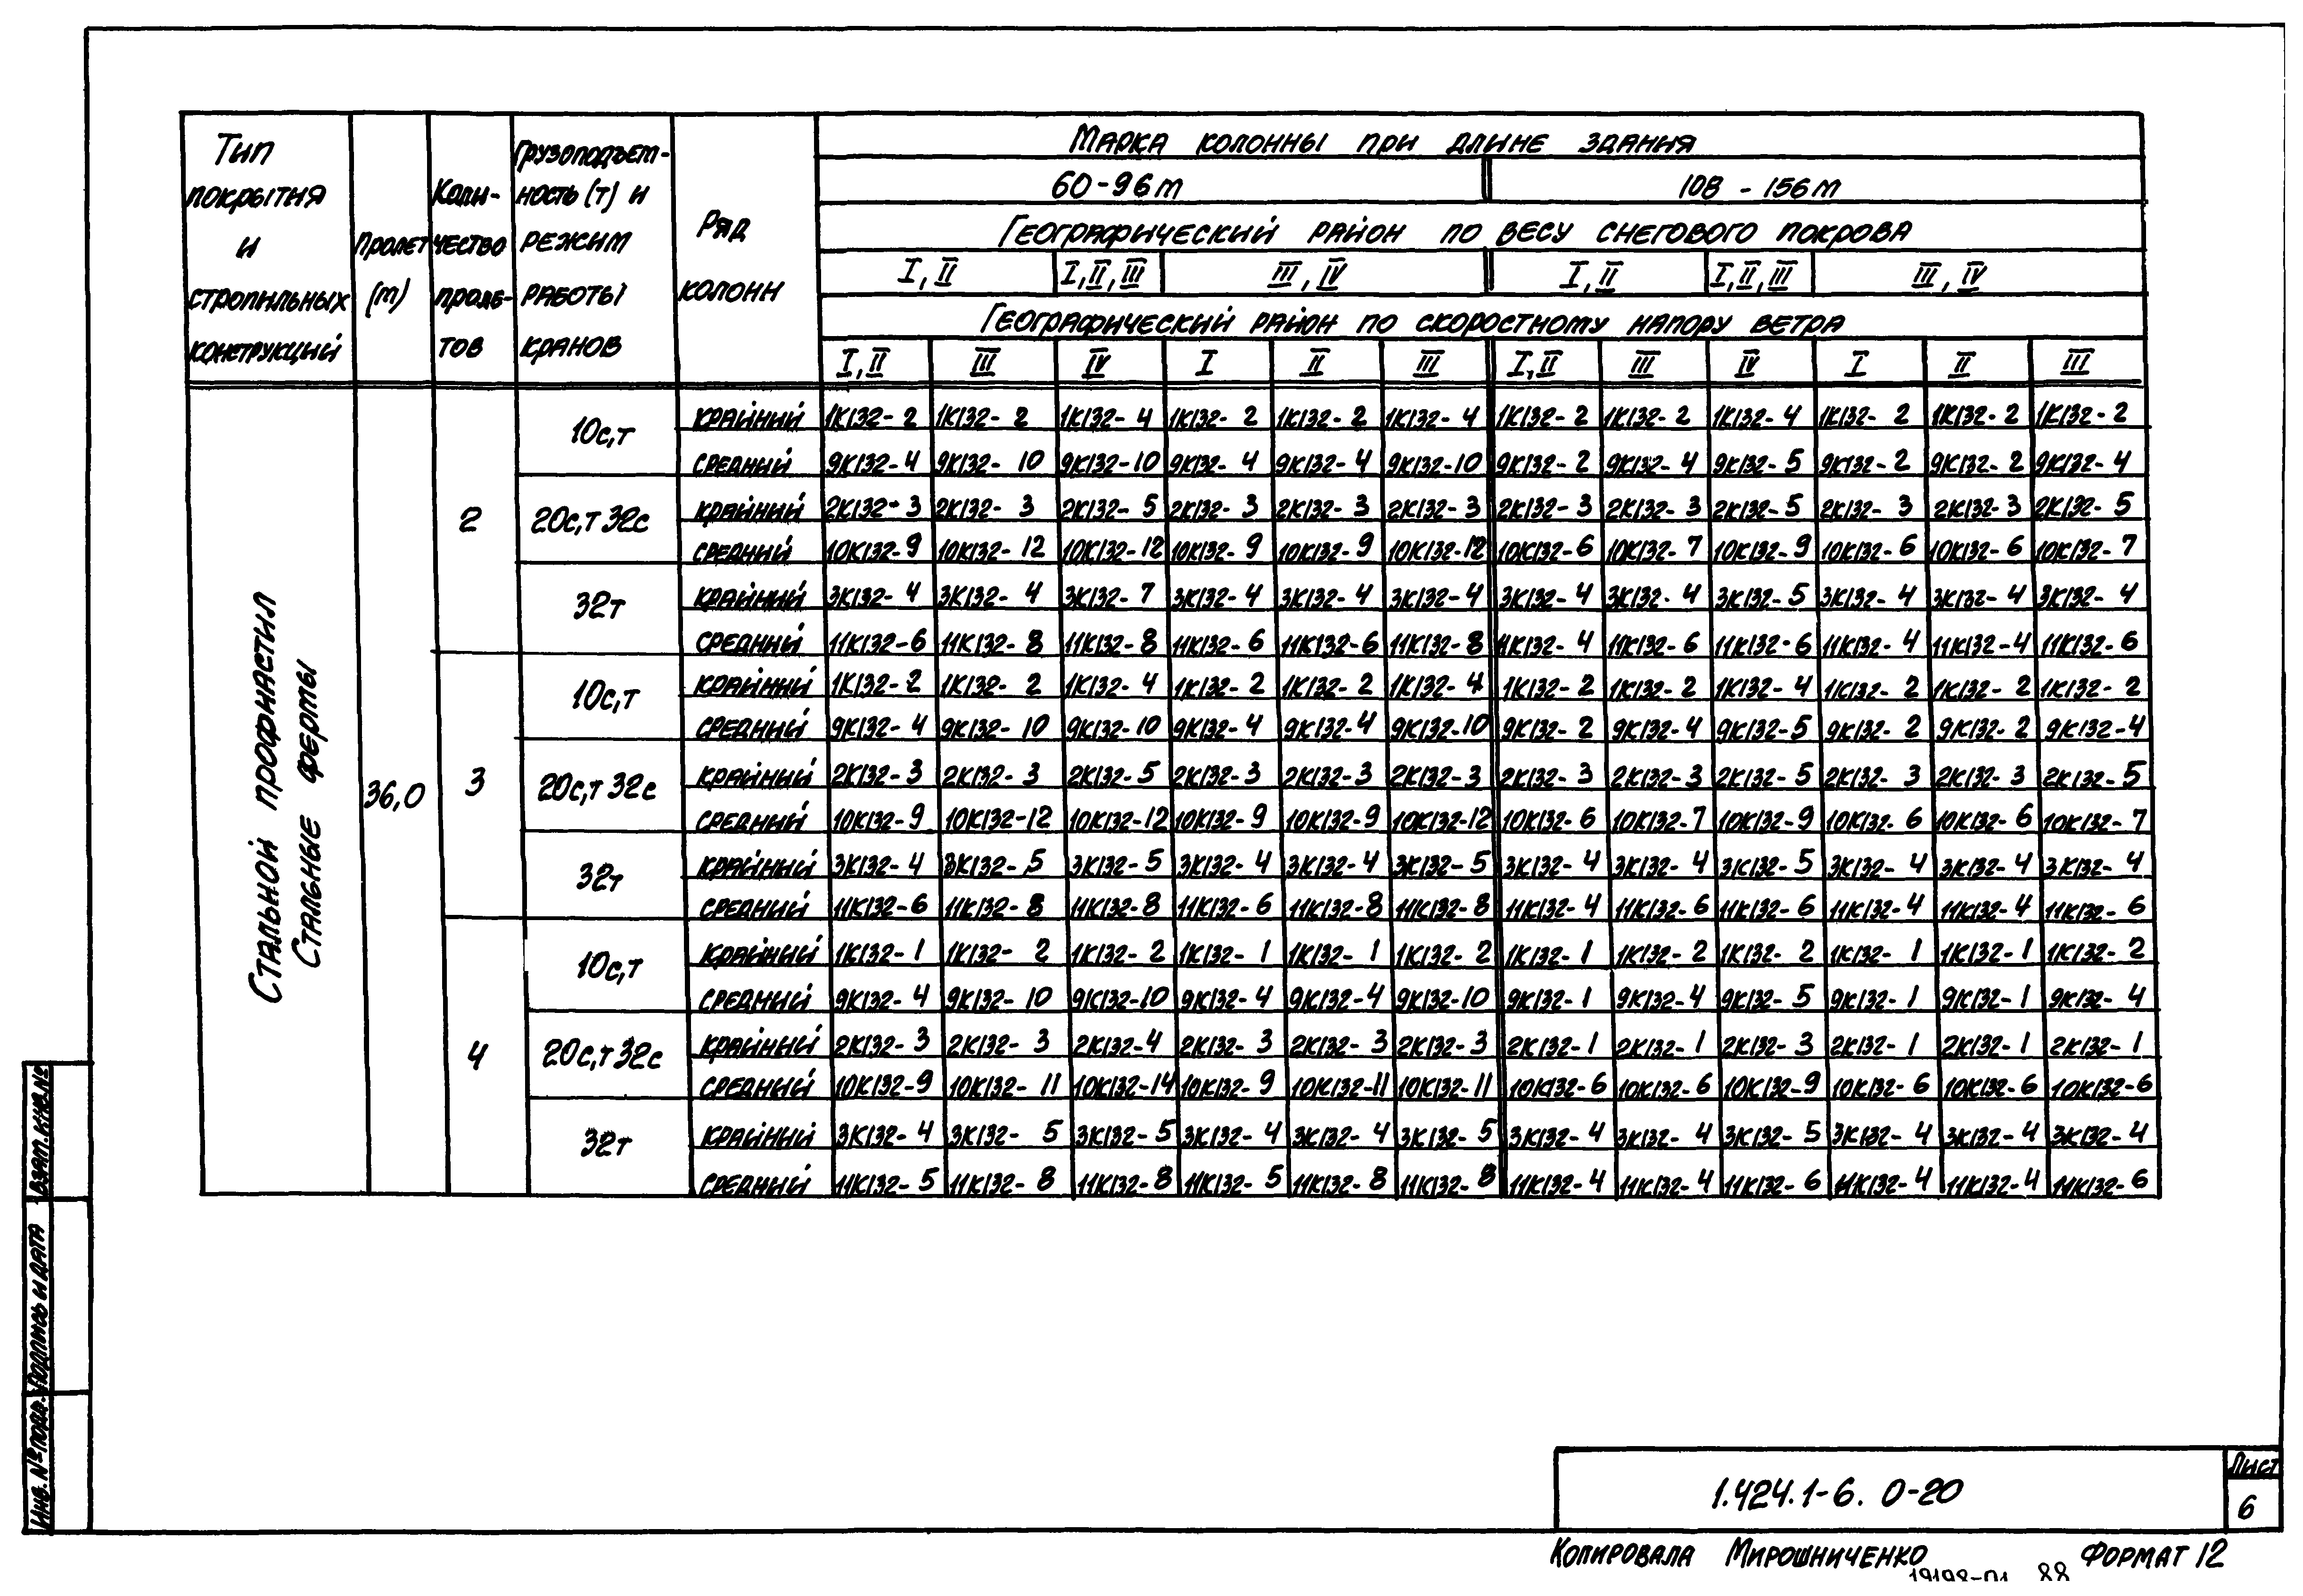 Тип покрытия и стропильных конструкций
Пролет (м)
Количество пролетов
Грузоподъемность (т) и режим работы кранов
Ряд колонн
Марка колонны при длине здания
60-96м 108-156м
Географический район по весу снегового покрова
I, II I, II, III III, IV I, II I, II, III III, IV
Географический район по скоростному напору ветра
I, II III IV I II III I, II III IV I II III
Стальной профнастил
Стальные фермы
36,0
2
10с,т
крайний 1К132-2 1К132-2 1К132-4 1К132-2 1К132-2 1К132-4 1К132-2 1К132-2 1К132-4 1К132-2 1К132-2 1К132-2
средний 9К132-4 9К132-10 9К132-10 9К132-4 9К132-4 9К132-10 9К132-2 9К132-4 9К132-5 9К132-2 9К132-2 9К132-4
20с,т 32с
крайний 2К132-3 2К132-3 2К132-5 2К132-3 2К132-3 2К132-3 2К132-3 2К132-3 2К132-5 2К132-3 2К132-3 2К132-5
средний 10К132-9 10К132-12 10К132-12 10К132-9 10К132-9 10К132-12 10К132-6 10К132-7 10К132-9 10К132-6 10К132-6 10К132-7
32т
крайний 3К132-4 3К132-4 3К132-7 3К132-4 3К132-4 3К132-4 3К132-4 3К132-4 3К132-5 3К132-4 3К132-4 3К132-4
средний 11К132-6 11К132-8 11К132-8 11К132-6 11К132-6 11К132-8 11К132-4 11К132-6 11К132-6 11К132-4 11К132-4 11К132-6
3
10с,т
крайний 1К132-2 1К132-2 1К132-4 1К132-2 1К132-2 1К132-4 1К132-2 1К132-2 1К132-4 1К132-2 1К132-2 1К132-2
средний 9К132-4 9К132-10 9К132-10 9К132-4 9К132-4 9К132-10 9К132-2 9К132-4 9К132-5 9К132-2 9К132-2 9К132-4
20с,т 32с
крайний 2К132-3 2К132-3 2К132-5 2К132-3 2К132-3 2К132-3 2К132-3 2К132-3 2К132-5 2К132-3 2К132-3 2К132-5
средний 10К132-9 10К132-12 10К132-12 10К132-9 10К132-9 10К132-12 10К132-6 10К132-7 10К132-9 10К132-6 10К132-6 10К132-7
32т
крайний 3К132-4 3К132-5 3К132-5 3К132-4 3К132-4 3К132-5 3К132-4 3К132-4 3К132-5 3К132-4 3К132-4 3К132-4
средний 11К132-6 11К132-8 11К132-8 11К132-6 11К132-8 11К132-8 11К132-4 11К132-6 11К132-6 11К132-4 11К132-4 11К132-6
4
10с,т
крайний 1К132-1 1К132-2 1К132-2 1К132-1 1К132-1 1К132-2 1К132-1 1К132-2 1К132-2 1К132-1 1К132-1 1К132-2
средний 9К132-4 9К132-10 9К132-10 9К132-4 9К132-4 9К132-10 9К132-1 9К132-4 9К132-5 9К132-1 9К132-1 9К132-4
20с,т 32с
крайний 2К132-3 2К132-3 2К132-4 2К132-3 2К132-3 2К132-3 2К132-1 2К132-1 2К132-3 2К132-1 2К132-1 2К132-1
средний 10К132-9 10К132-11 10К132-14 10К132-9 10К132-11 10К132-11 10К132-6 10К132-6 10К132-9 10К132-6 10К132-6 10К132-6
32т
крайний 3К132-4 3К132-5 3К132-5 3К132-4 3К132-4 3К132-5 3К132-4 3К132-4 3К132-5 3К132-4 3К132-4 3К132-4
средний 11К132-5 11К132-8 11К132-8 11К132-5 11К132-8 11К132-8 11К132-4 11К132-4 11К132-6 11К132-4 11К132-4 11К132-6
Взам.инв.№
Подпись и дата
Инв. № подл.
1.424.1-6. 0-20
Лист
6
Копировала Мирошниченко Формат 12
19198-01 88